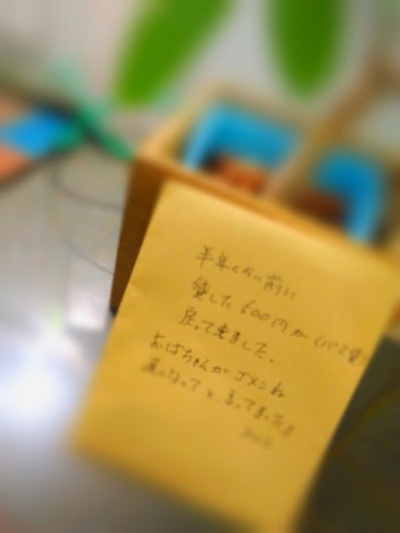 半年くらい前に
貸した600円が(バス賃)
戻って来ました。
おばちゃんがゴメンね
遅くなってと言ってました